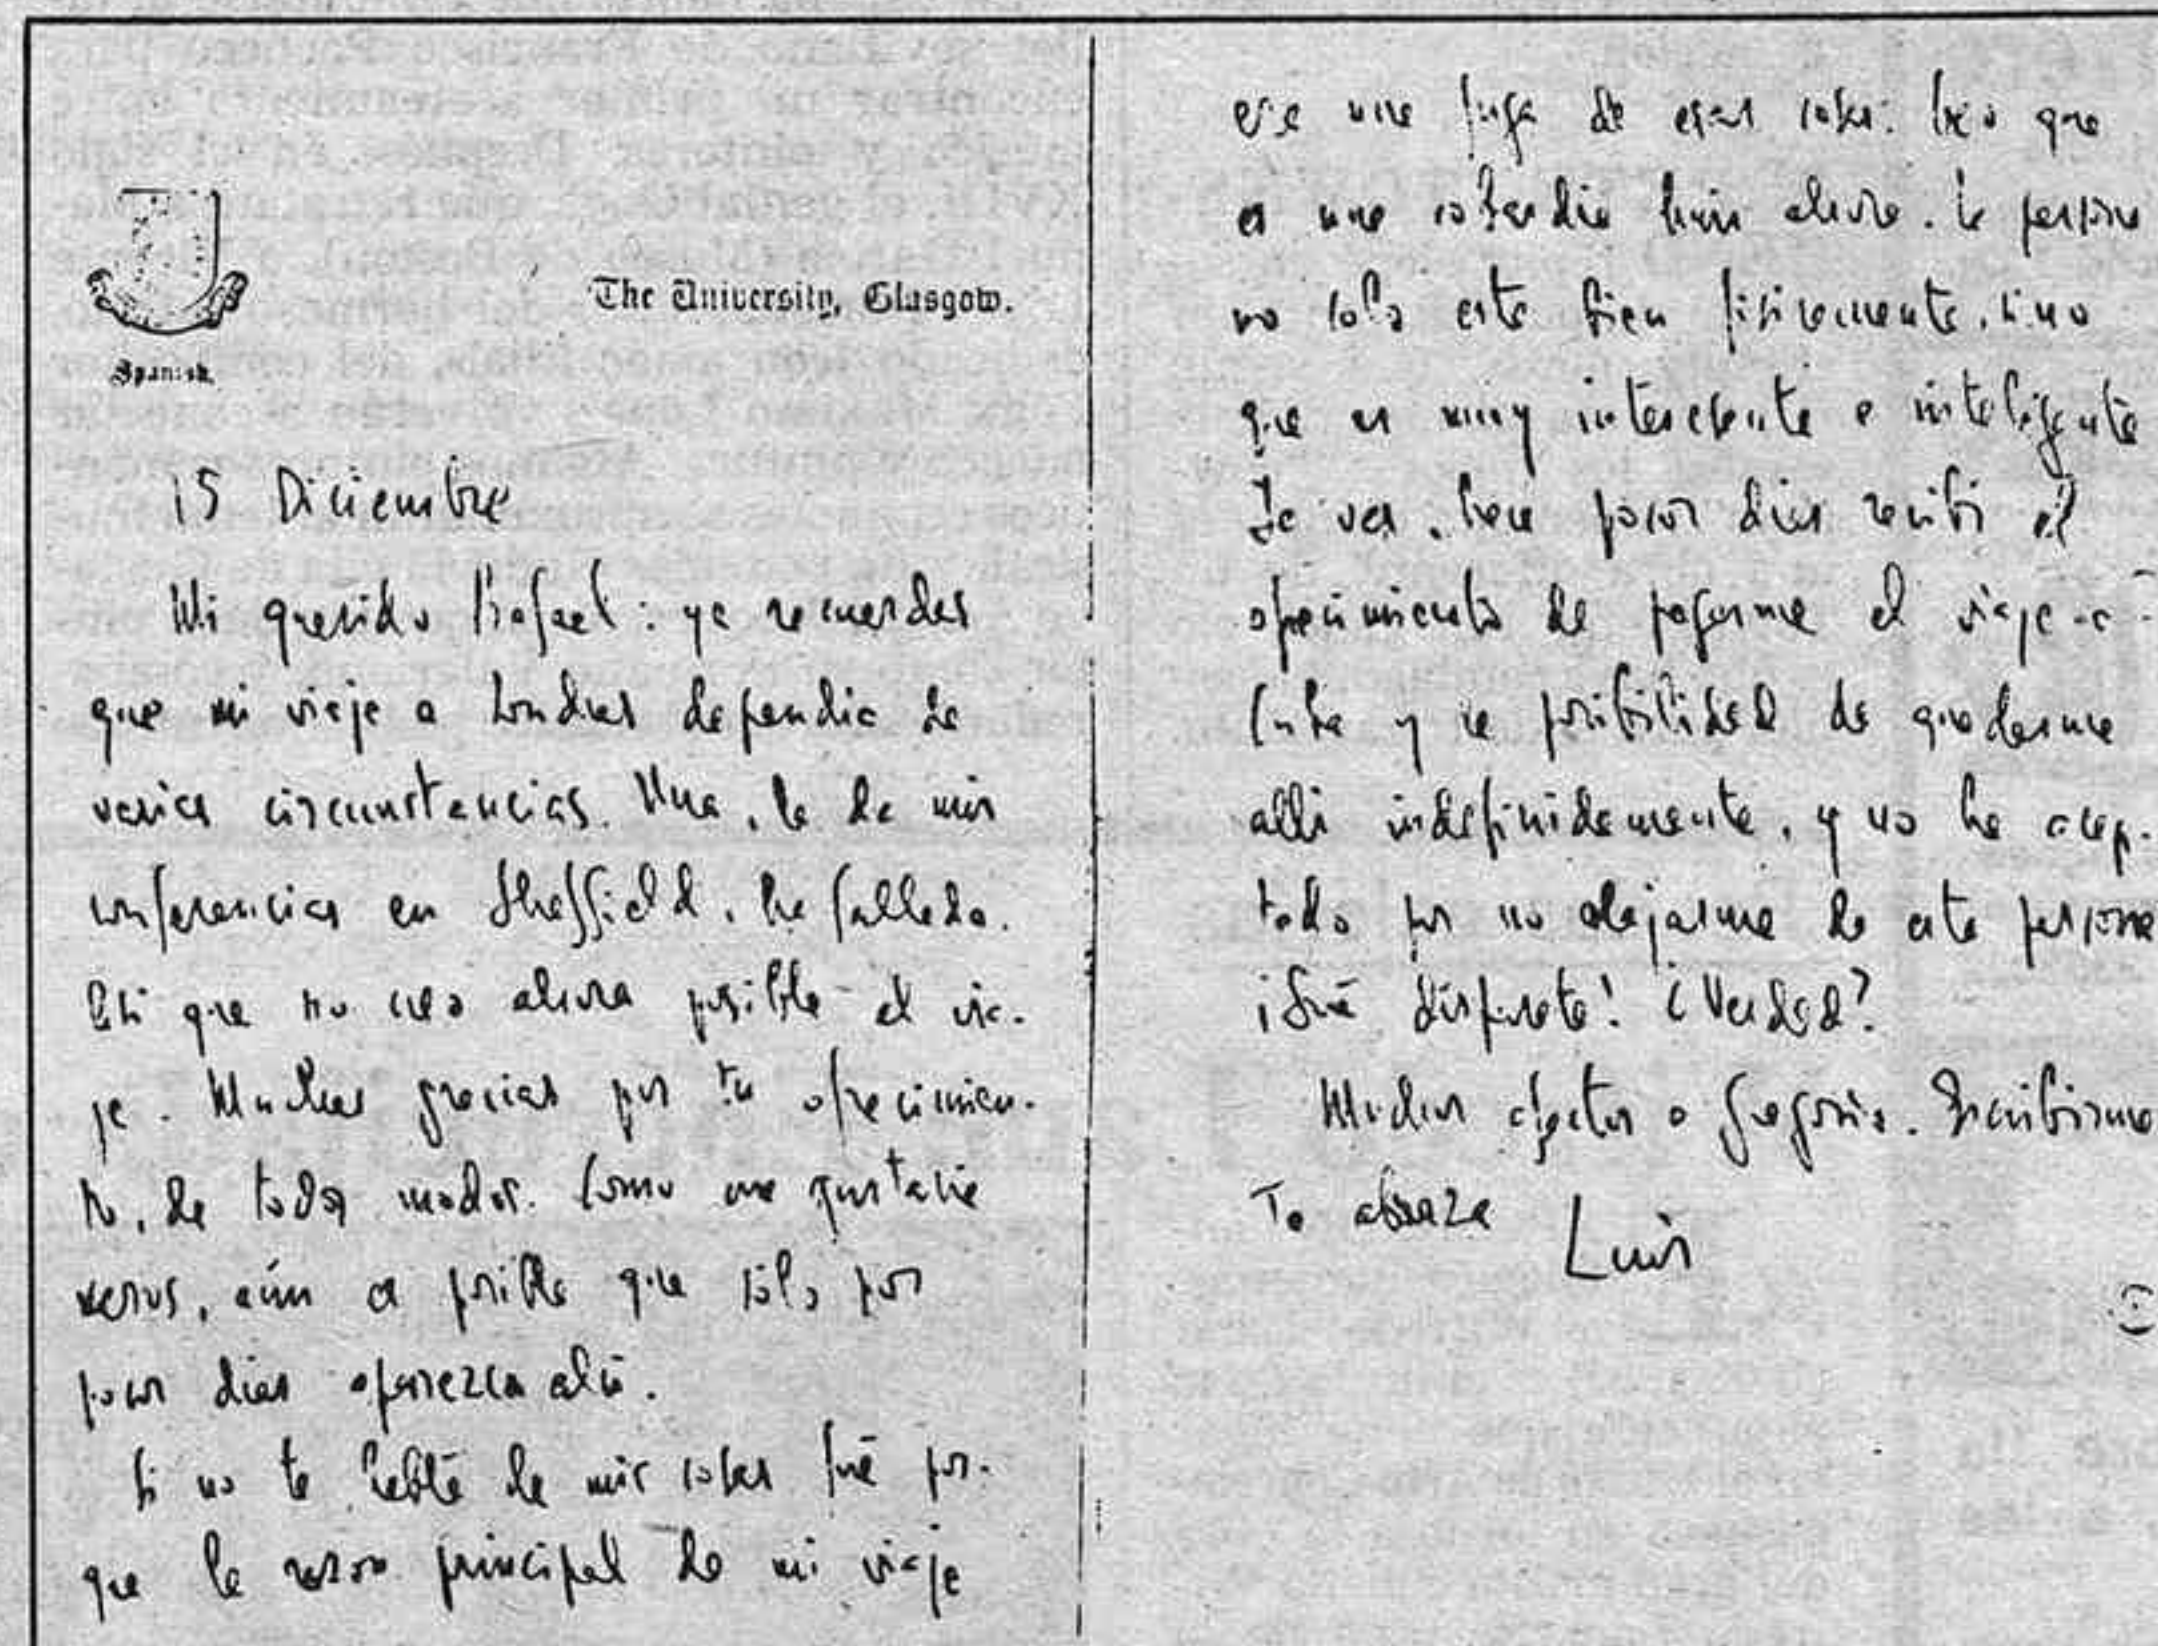 The University, Glasgow.
Spanish.
15 Diciembre
Mi querido Rafael: ya recuerdas
que mi viaje a Londres dependia de
varias circunstancias. Una, la de mis
conferencias en Sheffield, ha fallado.
Asi que no creo ahora posible el via-
je. Muchas gracias por tu ofrecimien-
to, de todos modos. Como me gustaria
veros, aún es posible que sólo por
pocos dias aparezca ahí.
Si no te hablé de mis cosas fué por-
que la razon principal de mi viaje
era una fuga de esas cosas. Creo que
es una cobardia huir ahora. La persona
no solo esta bien fisicamente, sino
que es muy interesante e inteligente
Ya ves, hace pocos dias recibi el
ofrecimiento de pagarme el viaje a
Cuba y la posibilidad de quedarme
alli indefinidamente, y no he acep-
tado por no alejarme de esta persona
¡Qué disparate! ¿Verdad?
Muchos afectos a Gregorio. Escribirme
Te abraza Luis